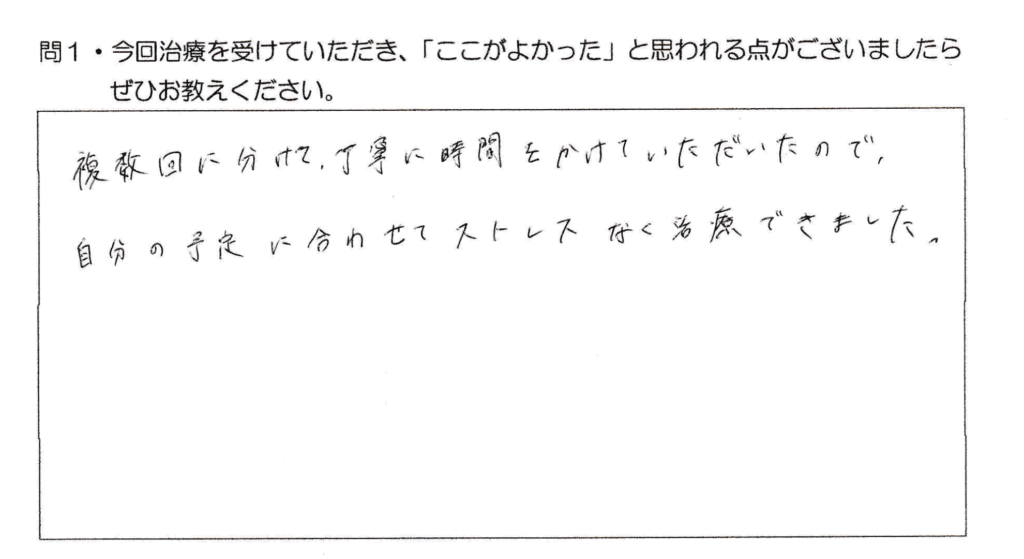 問1・今回治療を受けていただき、「ここがよかった」と思われる点がございましたら
ぜひお教えください。
複数回に分けて、丁寧に時間をかけていただいたので、
自分の予定に合わせてストレスなく治療できました。